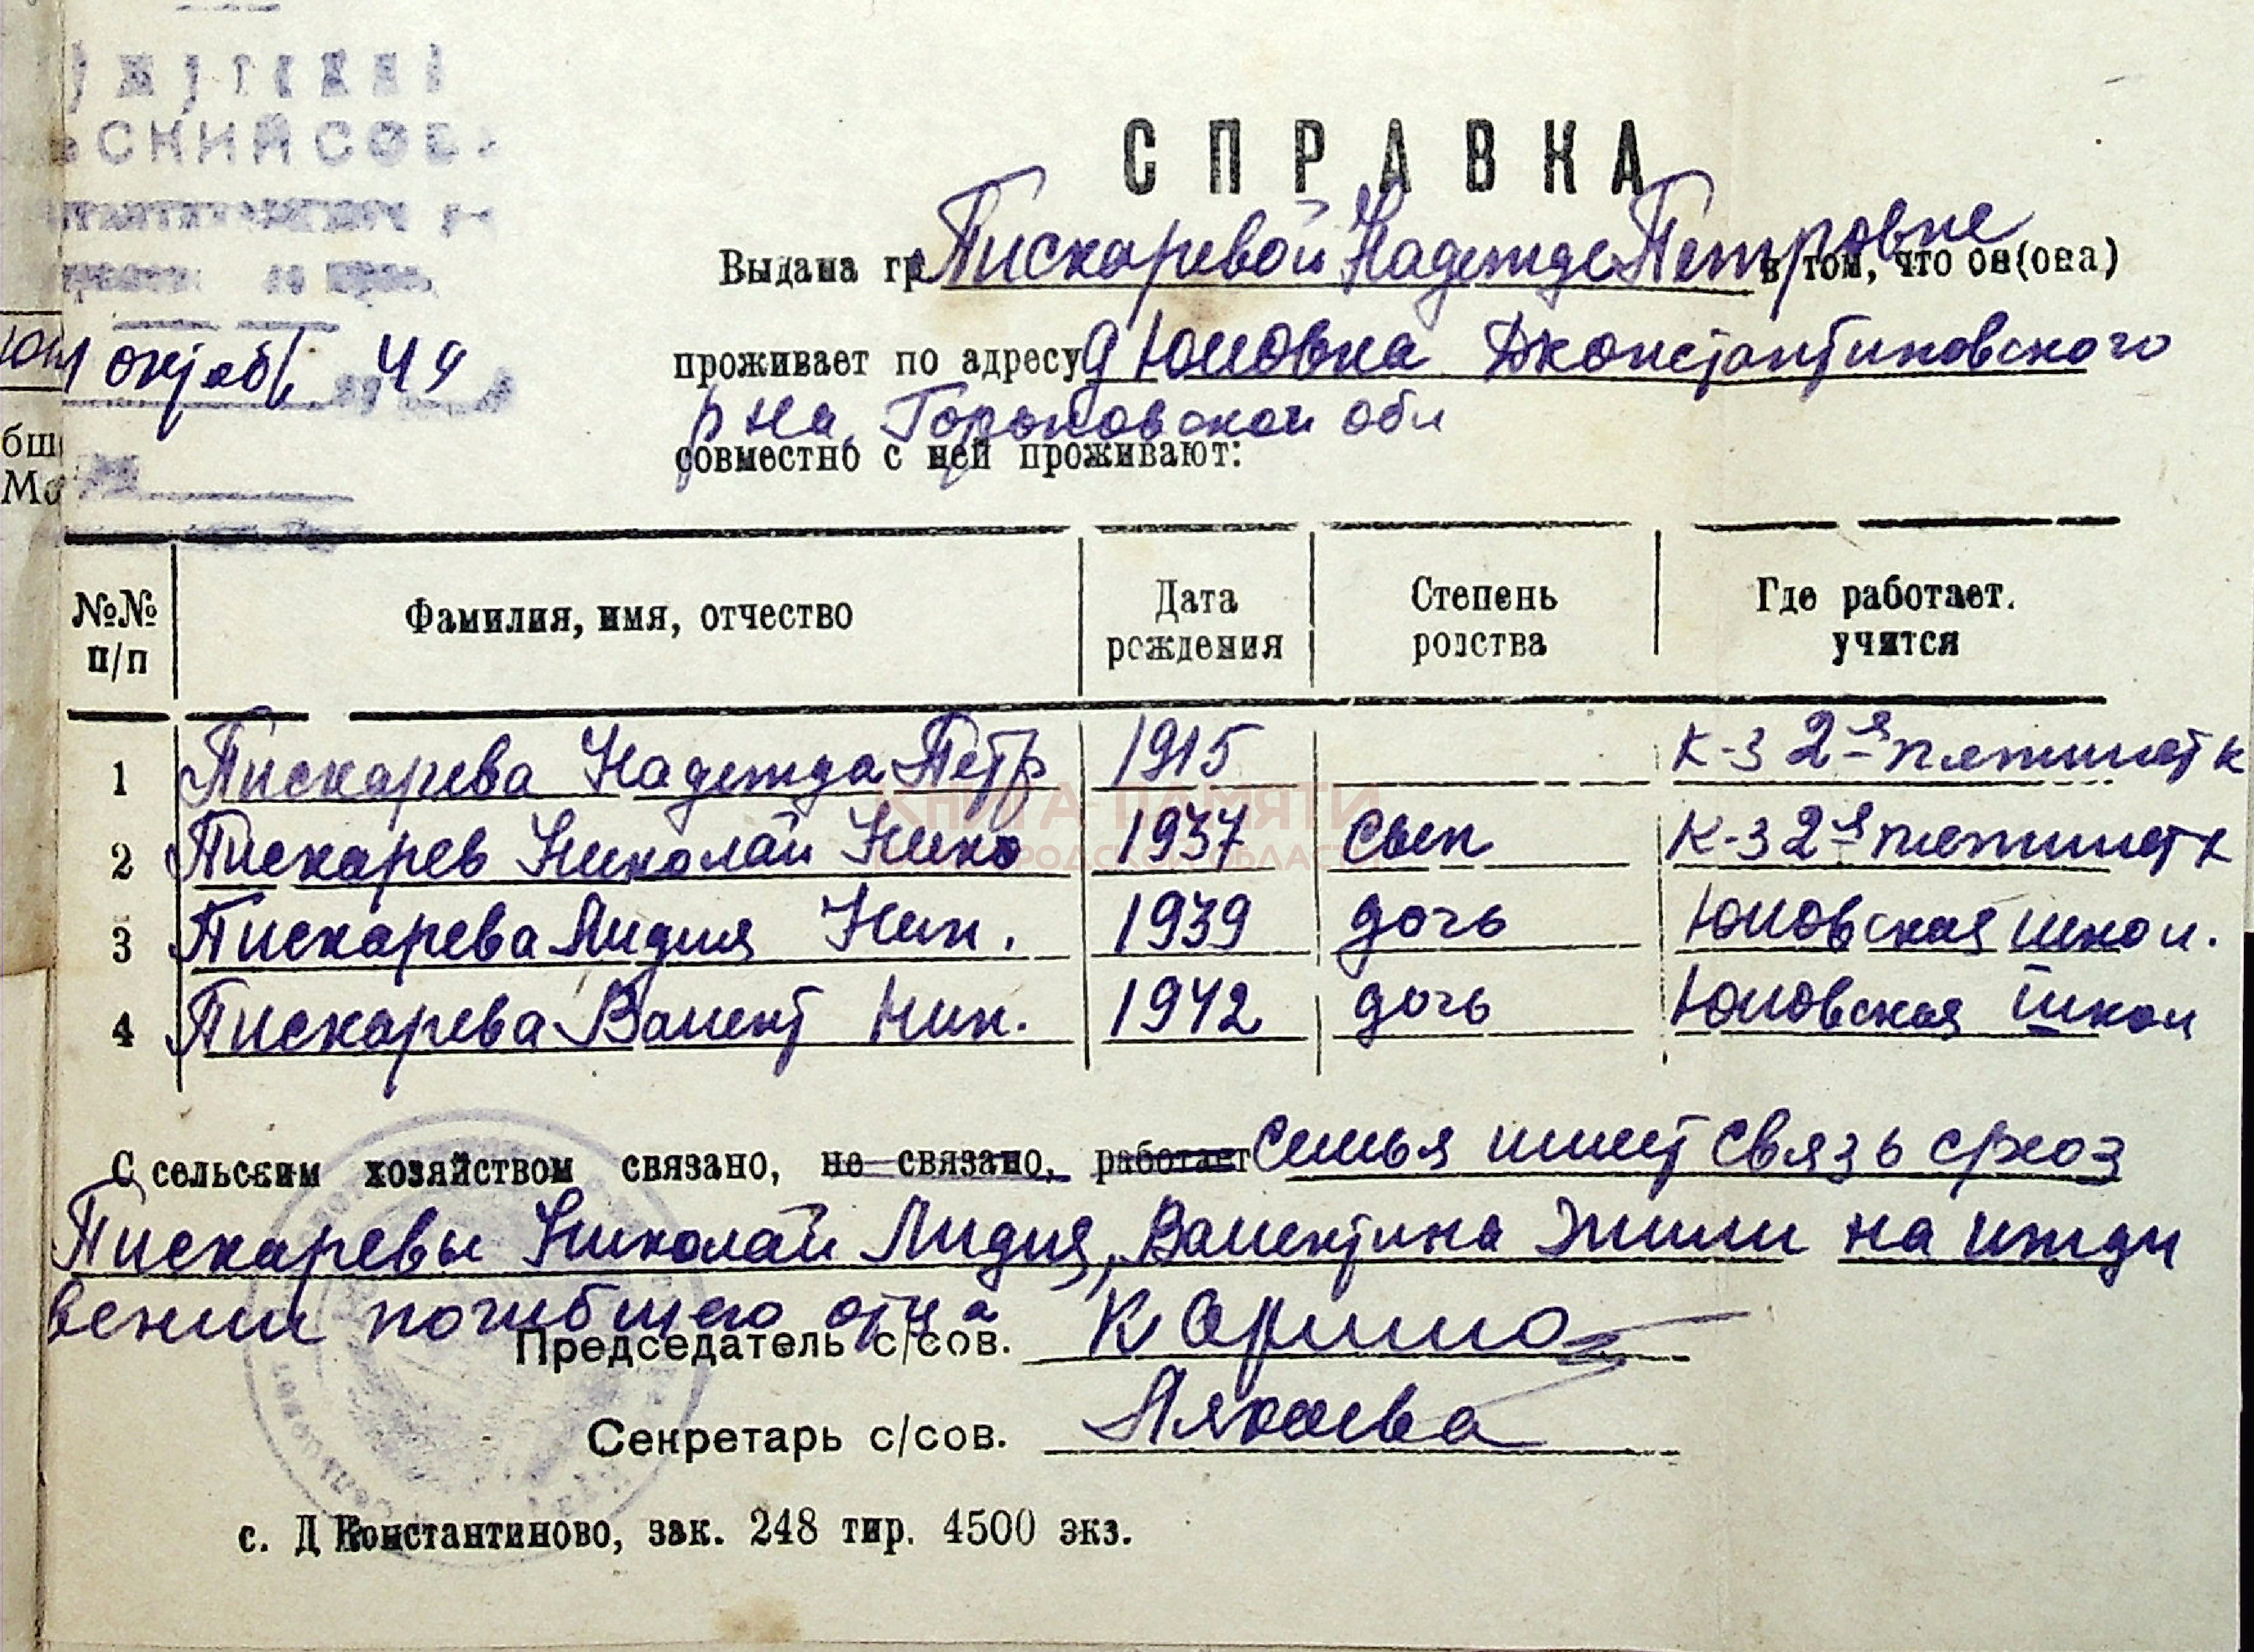 СПРАВКА
Выдана гр. Пискаревой Надежде Петровне в том, что он(она)
проживает по адресу д Юловка Дконстантиновского
р на Горьковской обл
совместно с ней проживают:
октяб 49
№№ п/п Фамилия, имя, отчество Дата рождения Степень родства Где работает. учится
1 Пискарева Надежда Петр 1915 к-з 2-я пятилетк
2 Пискарев Николай Нико 1937 сын к-з 2-я пятилетк
3 Пискарева Лидия Ник. 1939 дочь Юловская школ.
4 Пискарева Валент Ник. 1942 дочь Юловская школ
КНИГА ПАМЯТИ
С сельским хозяйством связано, не связано, работает Семья имеет связь схоз
Пискаревы Николай Лидия, Валентина Жили на ижди
вении погибшего отца
Председатель с/сов.
Секретарь с/сов.
с. Д Константиново, зак. 248 тир. 4500 экз.